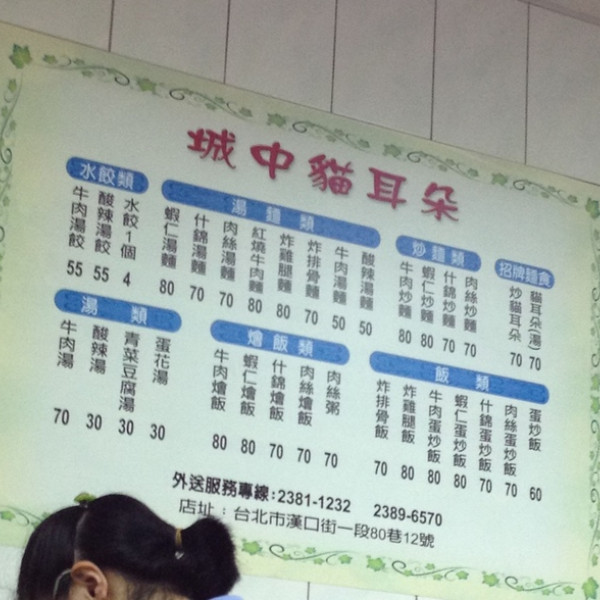 城中貓耳朵
招牌麵食
貓耳朵(湯) 70
炒貓耳朵 70
炒麵類
肉絲炒麵 70
什錦炒麵 70
蝦仁炒麵 80
牛肉炒麵 80
湯麵類
酸辣湯麵 50
牛肉湯麵 50
炸排骨麵 70
炸雞腿麵 80
紅燒牛肉麵 80
肉絲湯麵 70
什錦湯麵 70
蝦仁湯麵 80
水餃類
水餃1個 4
酸辣湯餃 55
牛肉湯餃 55
飯類
蛋炒飯 60
肉絲蛋炒飯 70
什錦蛋炒飯 70
蝦仁蛋炒飯 80
牛肉蛋炒飯 80
炸雞腿飯 80
炸排骨飯 70
燴飯類
肉絲粥 70
肉絲燴飯 70
什錦燴飯 70
蝦仁燴飯 80
牛肉燴飯 80
湯類
蛋花湯 30
青菜豆腐湯 30
酸辣湯 30
牛肉湯 70
外送服務專線:2381-1232 2389-6570
店址:台北市漢口街一段80巷12號